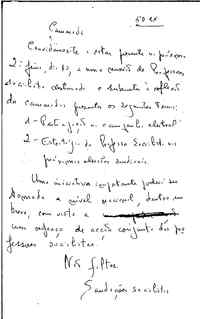 50 ex
Camarada
Convidamos-te a estar presente na próxima
2ª feira, dia 10, a uma reunião de Professores
socialistas destinada a submeter à reflexão
dos camaradas presentes os seguintes temas:
1 - Participação na campanha eleitoral
2 - Estratégia do Professor Socialista nas
próximas eleições sindicais.
Uma iniciativa importante poderá ser
tomada a nível nacional, dentro em
breve, com vista a
um reforço da acção conjunta dos pro-
fessores socialistas.
Não faltes.
Saudações socialistas